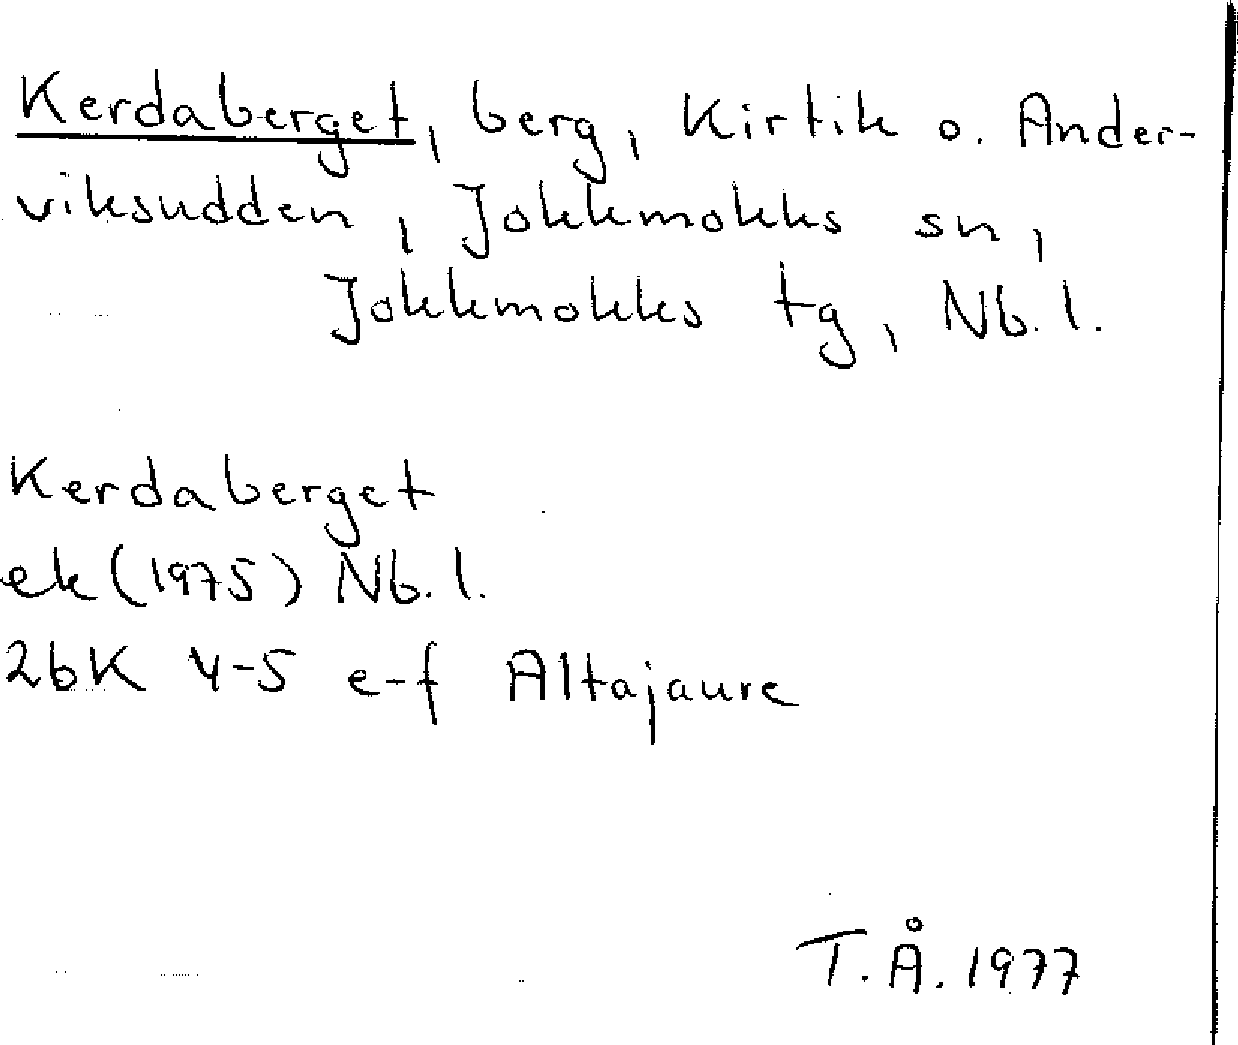 Kerdaberget, berg, Kirtik o. Ander-
viksudden, Jokkmokks sn,
Jokkmokks tg, Nb. l.
Kerdaberget
ek (1975) Nb. l.
26K 4-5 e-f Altajaure
T. Å. 1977